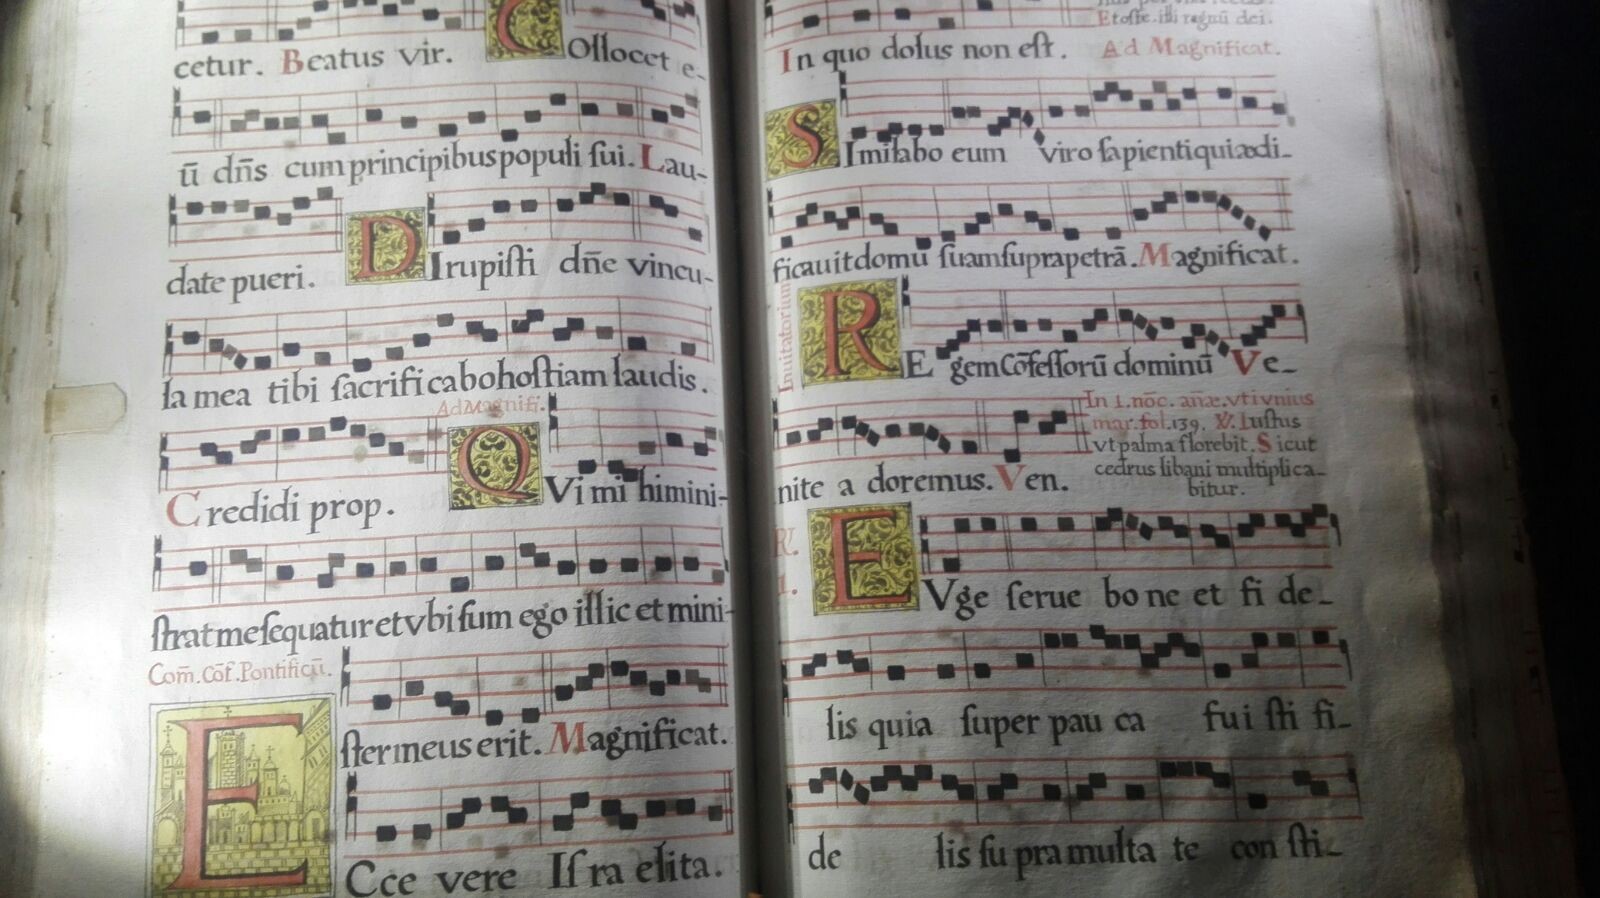 cetur. Beatus vir. COllocet e-
ū dn̄s cum principibus populi ſui. Lau-
date pueri. DIrupiſti dn̄e vincu-
la mea tibi ſacrificabo hoſtiam laudis.
Ad Magnifi.
Credidi prop. QVi mihi mini-
ſtrat me ſequatur et vbi ſum ego illic et mini-
Com̄. Cōf. Pontificū.
ſter meus erit. Magnificat.
ECce vere Iſraelita.
Et oſte. illi regnū dei.
In quo dolus non eſt. Ad Magnificat.
SImilabo eum viro ſapienti qui ædi-
ficauit domū ſuam ſupra petrā. Magnificat.
Inuitatorium
REgem Cōfeſſorū dominū Ve-
In 1. noc̄. añæ. vt iv nius
mar. fol. 139. ℣. Iuſtus
vt palma florebit. Sicut
cedrus libani multiplica-
bitur.
nite adoremus. Ven.
℟. 1.
EVge ſerue bone et fide-
lis quia ſuper pauca fuiſti fi-
delis ſupra multa te conſti-